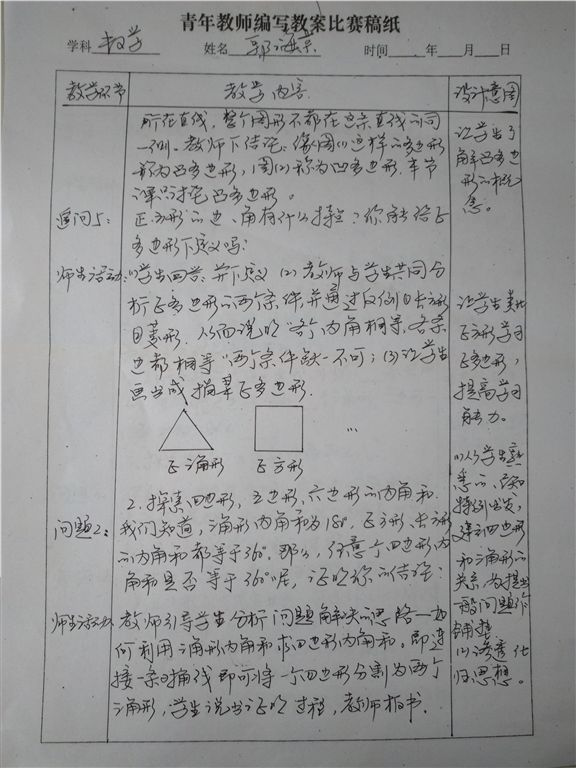 青年教师编写教案比赛稿纸
学科 数学 姓名 郭海 时间 年 月 日
教学环节 教学内容 设计意图
所在直线,整个图形不都在这条直线的同
一侧。教师下结论:像图(1)这样的多边形
称为凸多边形,图(2)称为凹多边形.本节
课只讨论凸多边形。
让学生了
解凸多边
形的概
念。
追问5: 正方形的边、角有什么特点?你能给正
多边形下定义吗?
师生活动:(1)学生回答,并下定义 (2)教师与学生共同分
析正多边形的两个条件,并通过反例①长方形
②菱形.从而说明“各个内角相等,各条
边都相等”两个条件缺一不可;(3)让学生
画出或描摹正多边形.
让学生类比
正方形学习
正多边形,
提高学习
能力。
正三角形 正方形 …
问题2: 2.探索四边形,五边形,六边形的内角和.
我们知道,三角形内角和为180°,正方形、长方形
的内角和都等于360°.那么,任意一个四边形内
角和是否等于360°呢,证明你的结论:
师生活动: 教师引导学生分析问题解决的思路——如
何利用三角形内角和求四边形内角和。即连
接一条对角线即可将一个四边形分割为两个
三角形,学生说出证明过程,教师板书.
(1)从学生熟
悉的、已知
特例出发,
建立四边形
和三角形的
关系,为提出
一般问题作
铺垫
(2)渗透化
归思想。